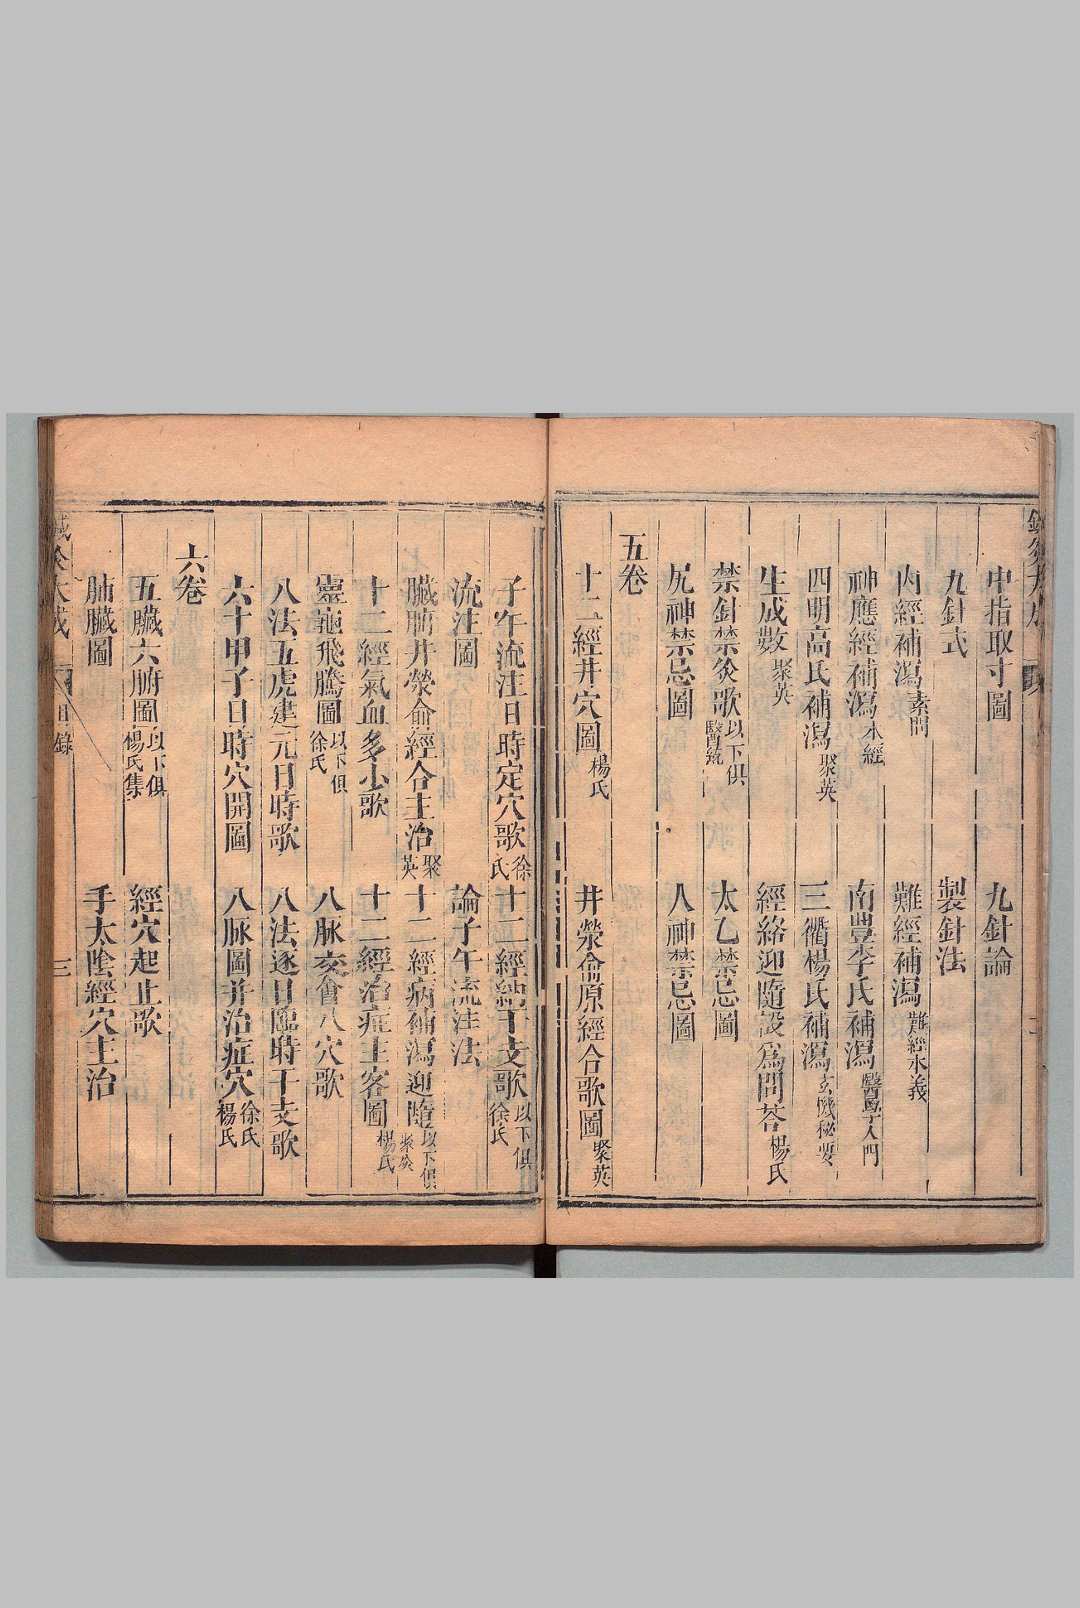 中指取寸圖　九針論
九針式　製針法
內經補瀉素問　難經補瀉難經本義
神應經補瀉本經　南豐李氏補瀉醫學入門
四明高氏補瀉聚英　三衢楊氏補瀉玄機秘要
生成數聚英　經絡迎隨設為問荅楊氏
禁針禁灸歌以下俱醫統　太乙禁忌圖
尻神禁忌圖　人神禁忌圖
五卷
十二經井穴圖楊氏　井滎俞原經合歌圖聚英
子午流注日時定穴歌徐氏　十二經納干支歌以下俱徐氏
流注圖　論子午流注法
臟腑井滎俞經合主治聚英　十二經病補瀉迎隨以下俱聚英
十二經氣血多少歌　十二經治症主客圖楊氏
靈龜飛騰圖以下俱徐氏　八脉交會八穴歌
八法五虎建元日時歌　八法逐日臨時干支歌
六十甲子日時穴開圖　八脉圖并治症穴徐氏楊氏
六卷
五臟六腑圖以下俱楊氏集　經穴起止歌
肺臟圖　手太陰經穴主治
鍼灸大成　目錄　三